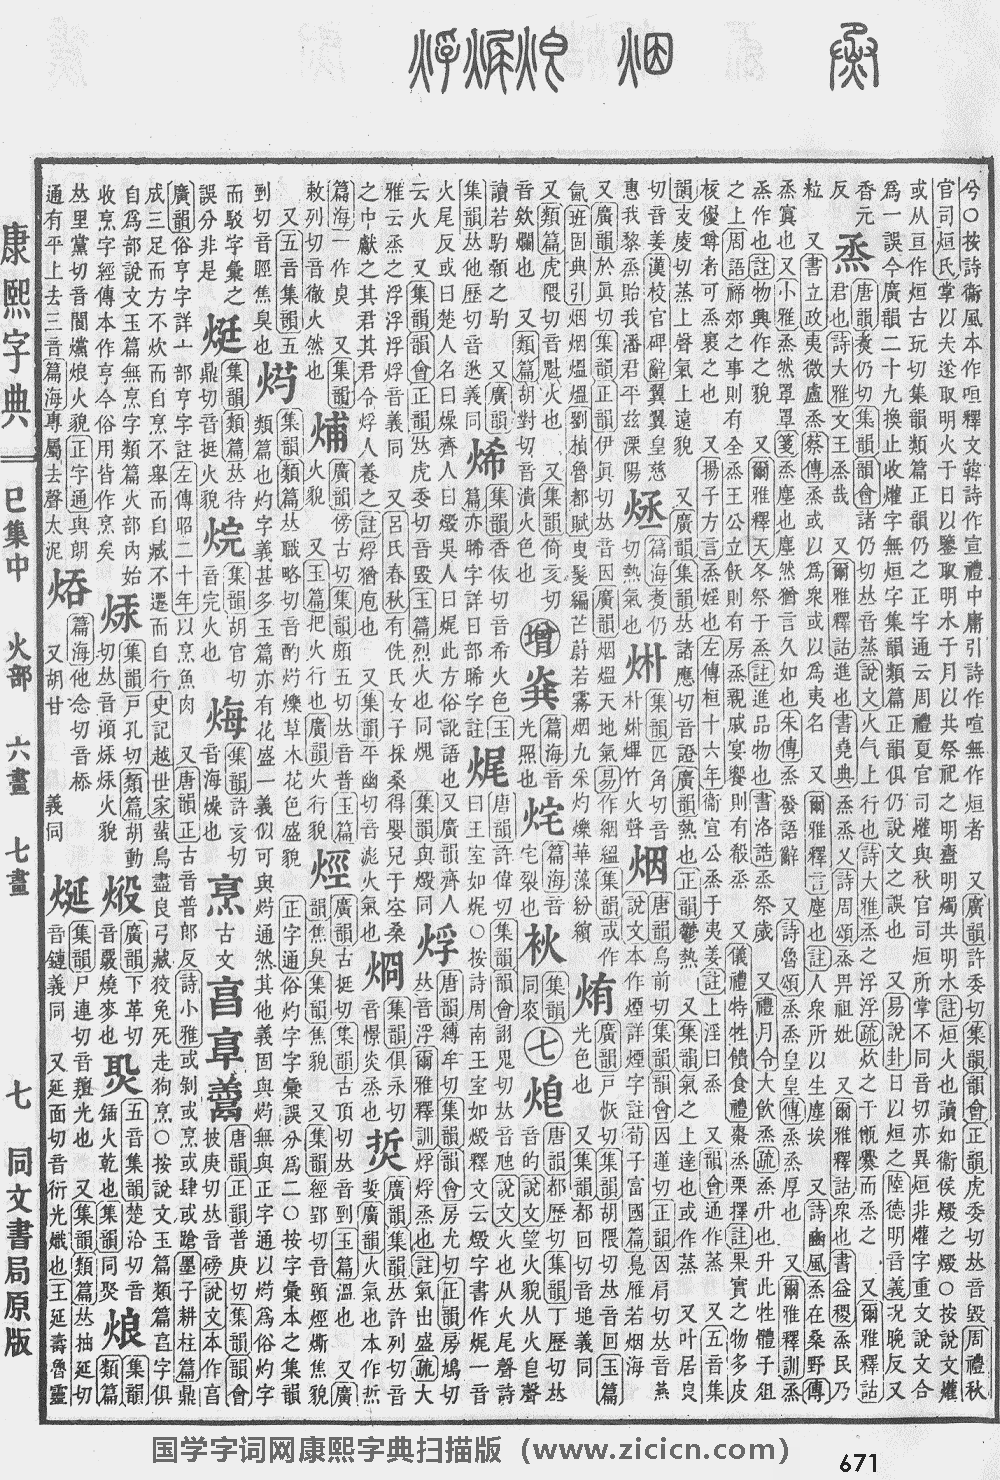 康熙字典 巳集中 火部 六畫 七畫 七 同文書局原版
兮〇按詩衞風本作咺釋文韓詩作宣禮中庸引詩作喧無作烜者 又廣韻許委切集韻韻會正韻虎委切𠀤音毀周禮秋
官司烜氏掌以夫遂取明火于日以鑒取明水于月以共祭祀之明齍明燭共明水註烜火也讀如衞侯燬之燬〇按說文爟
或从亘作烜古玩切集韻類篇正韻同正字通云周禮夏官司爟與秋官司烜所掌不同音切亦異烜非爟字重文說文合
爲一誤今廣韻二十九換止收爟字無烜字集韻類篇正韻俱仍說文之誤也 又易說卦日以烜之陸德明音義況晚反又
香元反
烝 唐韻煑仍切集韻韻會諸仍切𠀤音蒸說文火气上行也詩大雅烝之浮浮疏炊之于甑爨而烝之 又爾雅釋詁
君也詩大雅文王烝哉 又爾雅釋詁進也書堯典烝烝乂詩周頌烝畀祖妣 又爾雅釋詁衆也書益稷烝民乃
粒 又書立政夷微盧烝蔡傳烝或以爲衆或以爲夷名 又爾雅釋言塵也註人衆所以生塵埃 又詩豳風烝在桑野傳
烝窴也又小雅烝然罩罩箋烝塵也塵然猶言久如也朱傳烝發語辭 又詩魯頌烝烝皇皇傳烝烝厚也 又爾雅釋訓烝
烝作也註物興作之貌 又爾雅釋天冬祭于烝註進品物也書洛誥烝祭歲 又禮月令大飲烝疏烝升也升此牲體于俎
之上周語禘郊之事則有全烝王公立飫則有房烝親戚宴饗則有殽烝 又儀禮特牲饋食禮棗烝栗擇註果實之物多皮
核優尊者可烝裹之也 又揚子方言烝婬也左傳桓十六年衞宣公烝于夷姜註上淫曰烝 又韻會通作蒸 又五音集
韻支庱切蒸上聲氣上遠貌 又廣韻集韻𠀤諸應切音證廣韻熱也正韻鬱熱 又集韻氣之上達也或作蒸 又叶居良
切音姜漢校官碑辭翼翼皇慈惠我黎烝貽我潘君平茲溧陽
篇海煑仍切熱氣也
集韻匹角切音朴 竹火聲
烟 唐韻烏前切集韻韻會因蓮切正韻因肩切𠀤音燕說文本作煙詳煙字註荀子富國篇鳧雁若烟海
又廣韻於眞切集韻正韻伊眞切𠀤音因廣韻烟熅天地氣易作絪縕集韻或作氤班固典引烟烟熅熅劉楨魯都賦曳髮編芒蔚若霧烟九采灼爍華藻紛繽
烠 廣韻戸恢切集韻胡隈切𠀤音回玉篇光色也 又集韻都回切音塠義同 又類篇虎隈切音魁火也 又類篇胡對切音潰火色也
烯 集韻香依切音希火色玉篇亦晞字詳日部晞字註 又廣韻集韻倚亥切音欸爛也
增
篇海音光照也
烢 篇海音宅裂也
秋 集韻同
七
炮 唐韻都歷切集韻丁歷切𠀤音的說文望火貌从火皀聲讀若馰顙之馰
烠
娓 唐韻許偉切集韻韻會詡鬼切𠀤音虺說文火也从火尾聲詩曰王室如娓〇按詩周南王室如燬釋文云燬字書作㷄一音火尾反或曰楚人名曰燥齊人曰燬吳人曰㷄此方俗訛語也 又廣韻齊人云火 又集韻韻會正韻𠀤虎委切音毀玉篇烈火也同燬 集韻與燬同
烰 唐韻縛牟切集韻韻會房尤切正韻房鳩切𠀤音浮爾雅釋訓烰烰烝也註氣出盛疏大雅云烝之浮浮浮烰音義同 又呂氏春秋有侁氏女子採桑得嬰兒于空桑之中獻之其君其君令烰人養之註烰猶庖也 又集韻平幽切音淲火氣也
烱 集韻俱永切音憬炎烝也
焎 廣韻集韻𠀤許列切音娎廣韻火氣也本作烲
𤉐 廣韻傍古切集韻頗五切𠀤音普玉篇火行貌 又玉篇把火行也廣韻火行貌
烴 廣韻古挺切集韻古頂切𠀤音到玉篇溫也 又廣韻焦臭集韻焦貌 又集韻經郢切音頸烴㷿焦貌
焫 集韻類篇𠀤職略切音酌灼爍草木花色盛貌 正字通俗灼字字彙誤分爲二〇按字彙本之集韻類篇也灼字義甚多玉篇亦有花盛一義似可與焫通然其他義固與焫無與正字通以焫爲俗灼字而駁字彙之誤分非是
烶 集韻類篇𠀤待鼎切音挺火貌
烷 集韻胡官切音完火也
烸 集韻許亥切音海燥也
烹 古文 亯 𦎫 唐韻正韻普庚切集韻韻會披庚切𠀤音磅說文本作亯廣韻俗亨字詳亠部亨字註左傳昭二十年以烹魚肉 又唐韻正古音普郎反詩小雅或剝或烹或肆或將墨子耕柱篇鼎成三足而方不炊而自烹不舉而自臧不遷而自行史記越世家蜚鳥盡良弓藏狡兔死走狗烹〇按說文玉篇類篇亯字俱自爲部說文玉篇無烹字類篇火部內始收烹字經傳本作亨今俗用皆作烹矣
集韻戸孔切類篇胡動切𠀤音 火貌
煅 廣韻下革切音覈燒麥也
焣 五音集韻楚洽切音鍤火乾也集韻同聚
烺 集韻類篇𠀤里黨切音閬爣烺火貌正字通與朗通有平上去三音篇海專屬去聲太泥
篇海他念切音㮇 又胡甘 義同
烻 集韻尸連切音羶光也 又集韻類篇𠀤抽延切音鏈義同 又延面切音衍光熾也王延壽魯靈
国学字词网康熙字典扫描版（www.zicicn.com）
671